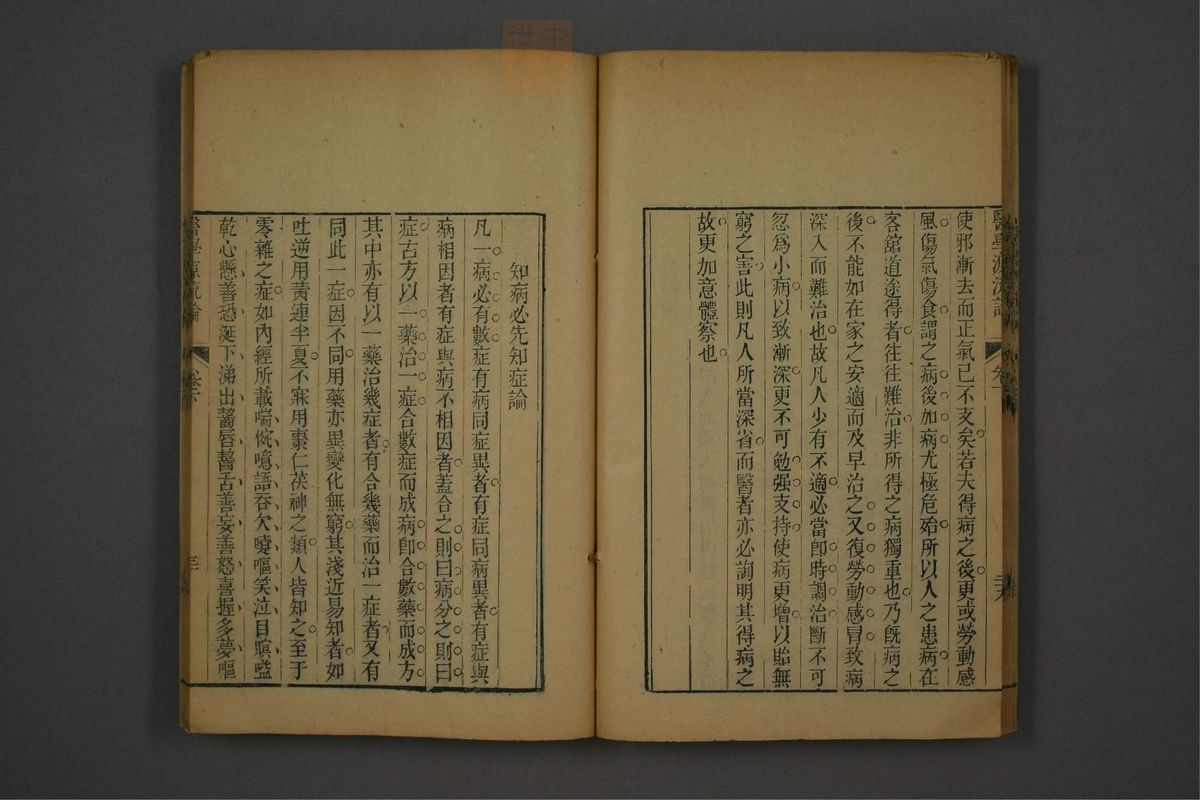 醫學源流論
卷六
三
使邪漸去而正氣已不支矣若夫得病之後更或勞動感
風傷氣傷食謂之病後加病尤極危殆所以人之患病在
客舘道途得者往往難治非所得之病獨重也乃旣病之
後不能如在家之安適而及早治之又復勞動感冒致病
深入而難治也故凡人少有不適必當卽時調治斷不可
忽爲小病以致漸深更不可勉强支持使病更增以貽無
窮之害此則凡人所當深省而醫者亦必詢明其得病之
故更加意體察也
知病必先知症論
凡一病必有數症有病同症異者有症同病異者有症與
病相因者有症與病不相因者蓋合之則曰病分之則曰
症古方以一藥治一症合數症而成病卽合數藥而成方
其中亦有以一藥治幾症者有合幾藥而治一症者又有
同此一症因不同用藥亦異變化無窮其淺近易知者如
吐逆用黃連半夏不寐用棗仁茯神之類人皆知之至于
零雜之症如內經所載喘惋噫語吞欠嚏嘔笑泣目瞑嗌
乾心懸善恐涎下涕出齧唇齧舌善妄善怒喜握多夢嘔
醫學源流論
卷六
三